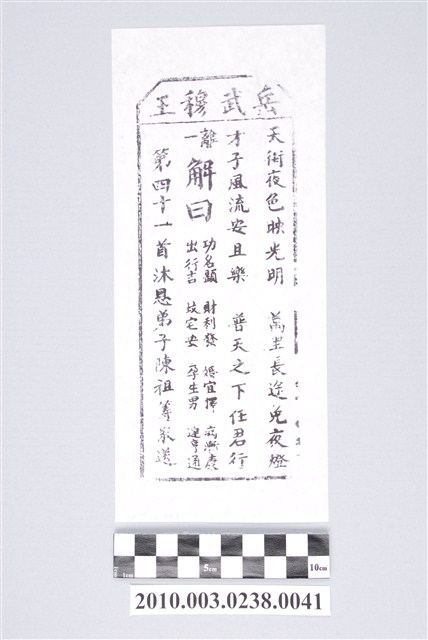 岳武穆王
天街夜色映光明 萬里長途免夜燈
才子風流安且樂 普天之下任君行
離一
解曰
功名顯 財利發 婚宜擇 病漸康
出行吉 歧宅安 孕生男 運亨通
第四十一首沐恩弟子陳祖籌敬送
5cm
10cm
2010.003.0238.0041